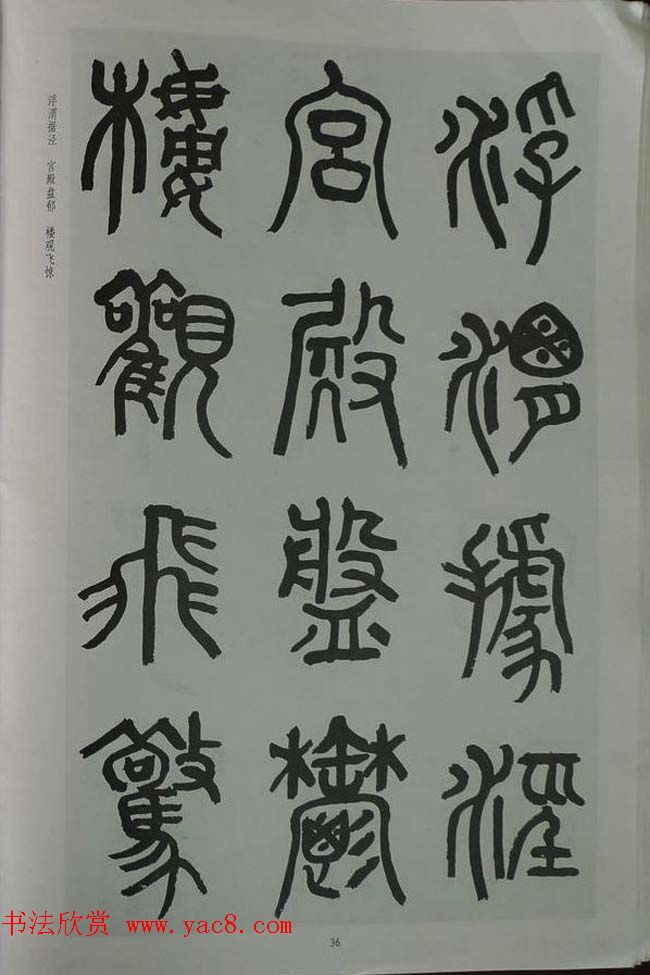 浮渭據涇
宮殿盤鬱
樓觀飛驚
浮渭据泾　宫殿盘郁　楼观飞惊
36
书法欣赏 www.yac8.com